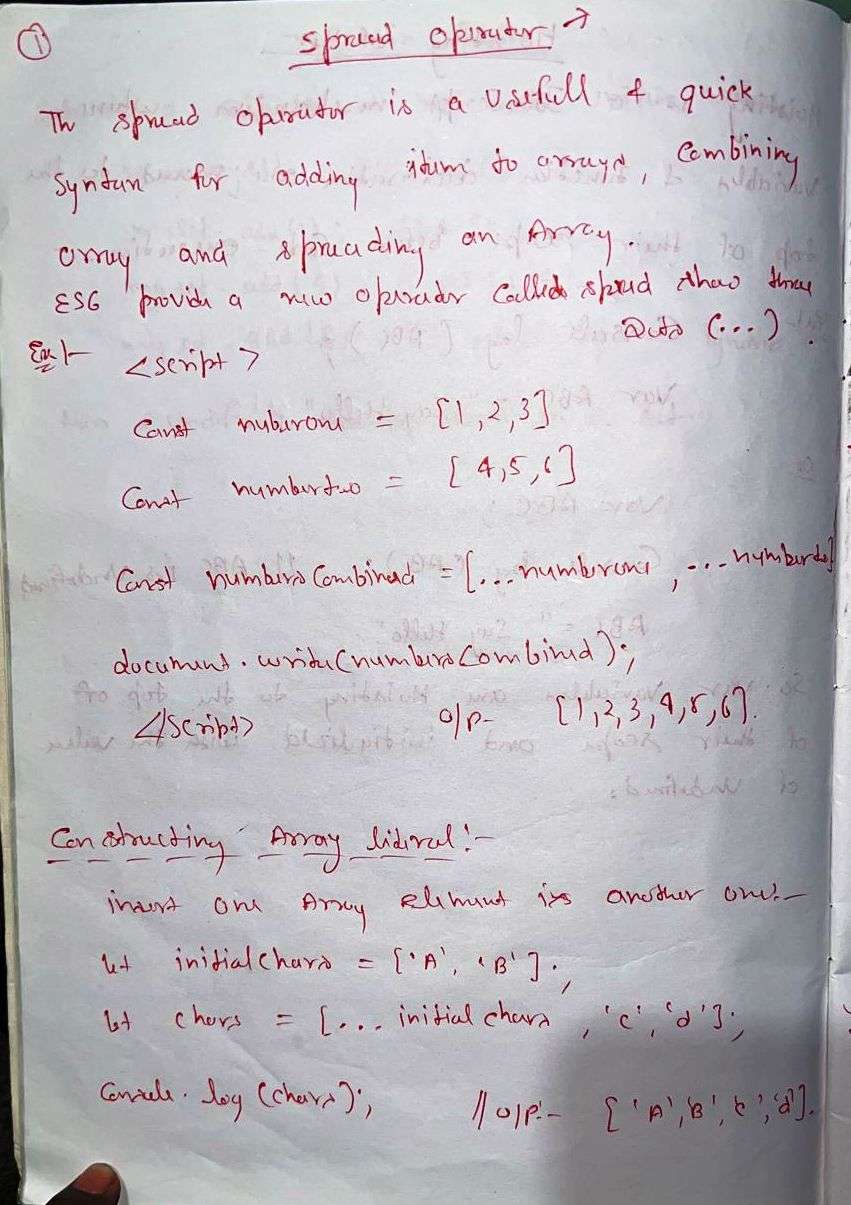 ①
Spread operator →
The spread operator is a Usefull & quick
Syntax for adding item to arrays, Combining
array and spreading an Array.
ES6 provide a new operator Called spread three
Dots (...).
Ex:-
<script>
Const nuberone = [1,2,3]
Const numbertwo = [4,5,6]
Const numbersCombined = [...numberone, ...numbertwo]
document.write(numbersCombined);
</script> O/P- [1,2,3,4,5,6].
Constructing Array literal:-
insert one Array element is another one:-
let initialChars = ['A', 'B'];
let chars = [...initialchars, 'c', 'd'];
Console.log(chars); // O/P:- ['A','B','c','d'].